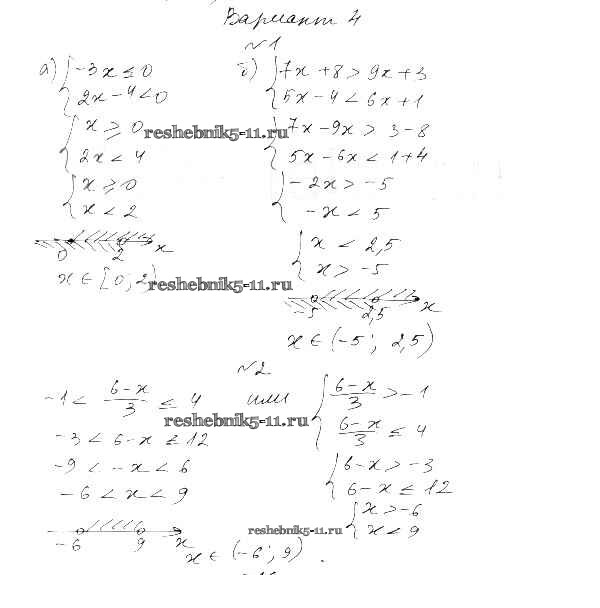 Вариант 4
№1
а) { -3x ≤ 0
2x - 4 < 0
{ x ≥ 0
2x < 4
{ x ≥ 0
x < 2
0 2 x
x ∈ [0; 2)
б) { 7x + 8 > 9x + 3
5x - 4 < 6x + 1
{ 7x - 9x > 3 - 8
5x - 6x < 1 + 4
{ -2x > -5
-x < 5
{ x < 2,5
x > -5
-5 2,5 x
x ∈ (-5; 2,5)
reshebnik5-11.ru
reshebnik5-11.ru
№2
-1 < (6-x)/3 ≤ 4 или
-3 < 6-x ≤ 12
-9 < -x < 6
-6 < x < 9
-6 9 x
{ (6-x)/3 > -1
(6-x)/3 ≤ 4
{ 6-x > -3
6-x ≤ 12
{ x > -6
x < 9
x ∈ (-6; 9)
reshebnik5-11.ru
reshebnik5-11.ru